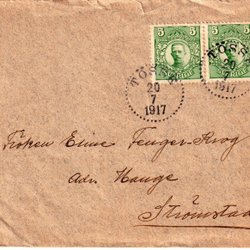 5 5 5 5
TÖSSE
20
7
1917
TÖSS
20
7
1917
Fröken Eine Fenger-Krog
adr. Hauge
Strömstad